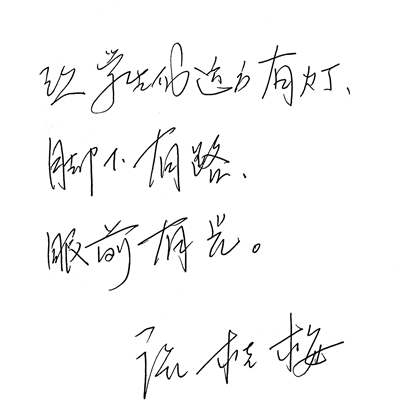 让学生们远方有灯、
脚下有路、
眼前有光。
张桂梅